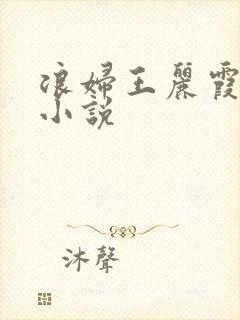 浪婦王麗霞
小說
沐聲